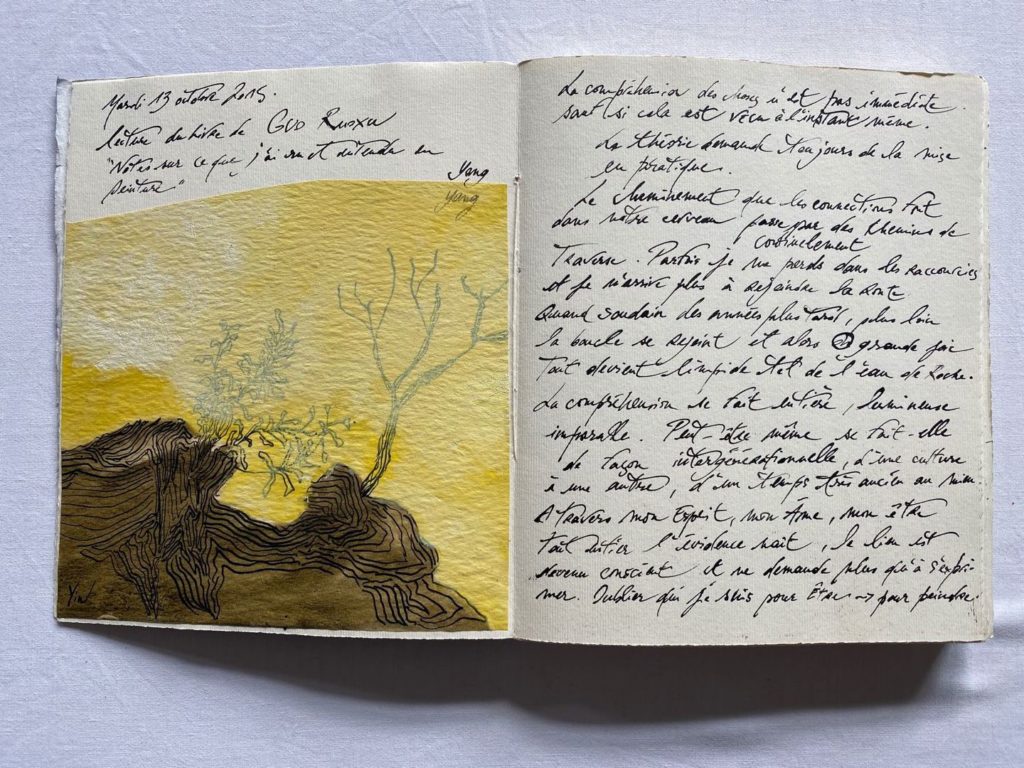 Mardi 13 octobre 2015.
Lecture du livre de GUO Ruoxu
"Notes sur ce que j'ai vu et entendu en
peinture"
Yang
Yang
Yin
La compréhension des choses n'est pas immédiate
sauf si cela est vécu à l'instant même.
La théorie demande toujours de la mise
en pratique.
Le cheminement que les connections font
dans notre cerveau passe par des chemins de
continuellement
Traverse. Parfois je me perds dans les raccourcis
et je n'arrive plus à rejoindre la route
Quand soudain des années plus tard, plus loin
la boucle se rejoint et alors grande joie
tout devient limpide tel de l'eau de Roche.
La compréhension se fait entière, lumineuse
imparable. Peut-être même se fait-elle
de façon intergénérationnelle, d'une culture
à une autre, d'un temps très ancien au mien.
A travers mon Esprit, mon Âme, mon être
tout entier l'évidence nait, le lien est
devenu conscient et ne demande plus qu'à s'expri-
mer. Oublier qui je suis pour Être → pour peindre.